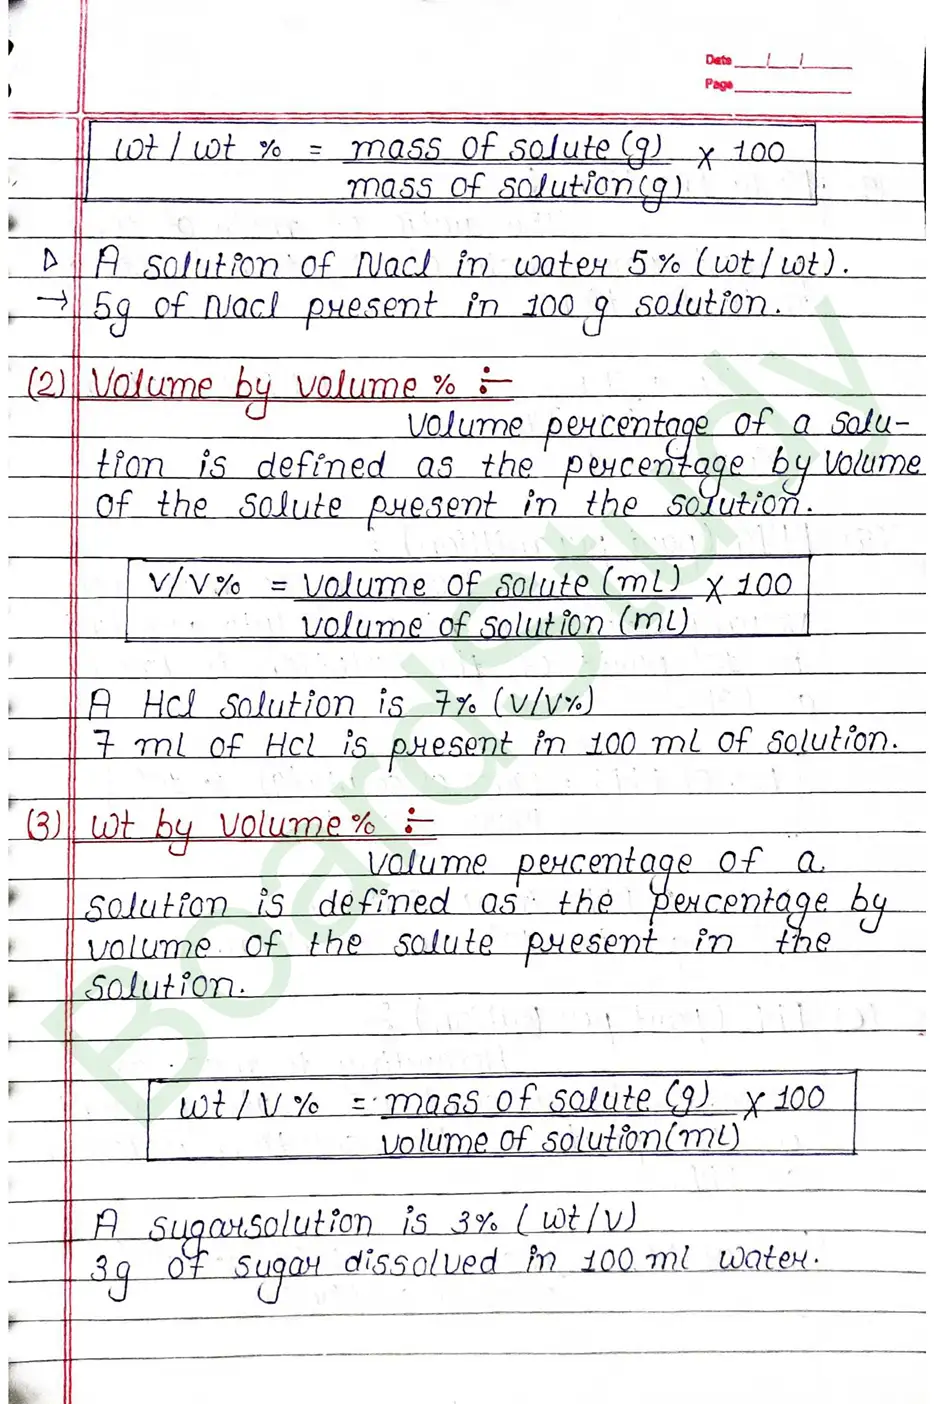 Date / /
Page
wt / wt % = mass of solute (g) x 100
mass of solution (g)
A solution of Nacl in water 5% (wt/wt).
→ 5g of Nacl present in 100 g solution.
(2) Volume by volume % ÷
Volume percentage of a solu-
tion is defined as the percentage by volume
of the solute present in the solution.
V/V% = volume of solute (mL) x 100
volume of solution (mL)
A Hcl solution is 7% (V/V%)
7 ml of Hcl is present in 100 mL of solution.
(3) wt by volume % ÷
Volume percentage of a
solution is defined as the percentage by
volume of the solute present in the
solution.
wt / V % = mass of solute (g) x 100
volume of solution (mL)
A sugarsolution is 3% (wt/v)
3g of sugar dissolved in 100 ml water.
BoardStudy